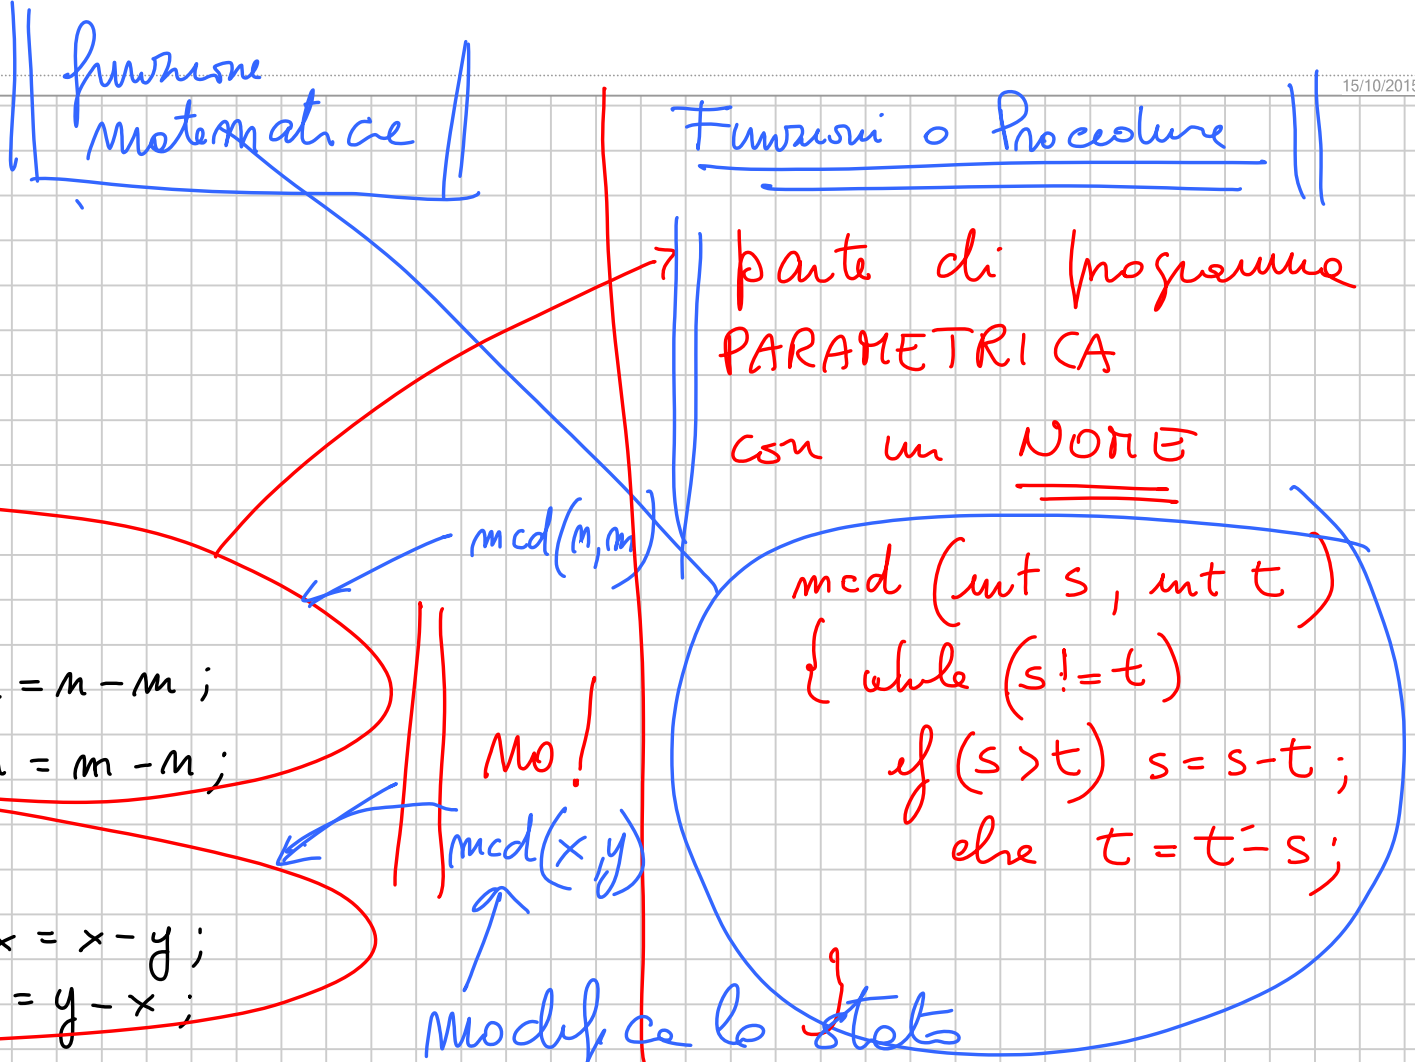 funzione
matematica
15/10/2015
Funzioni o Procedure
parte di programma
PARAMETRICA
con un NOME
mcd(n,m)
= n - m ;
= m - n ;
NO!
mcd(x,y)
x = x - y ;
= y - x ;
modifica lo stato
mcd (int s, int t)
{ while (s != t)
if (s > t) s = s - t ;
else t = t - s ;
}